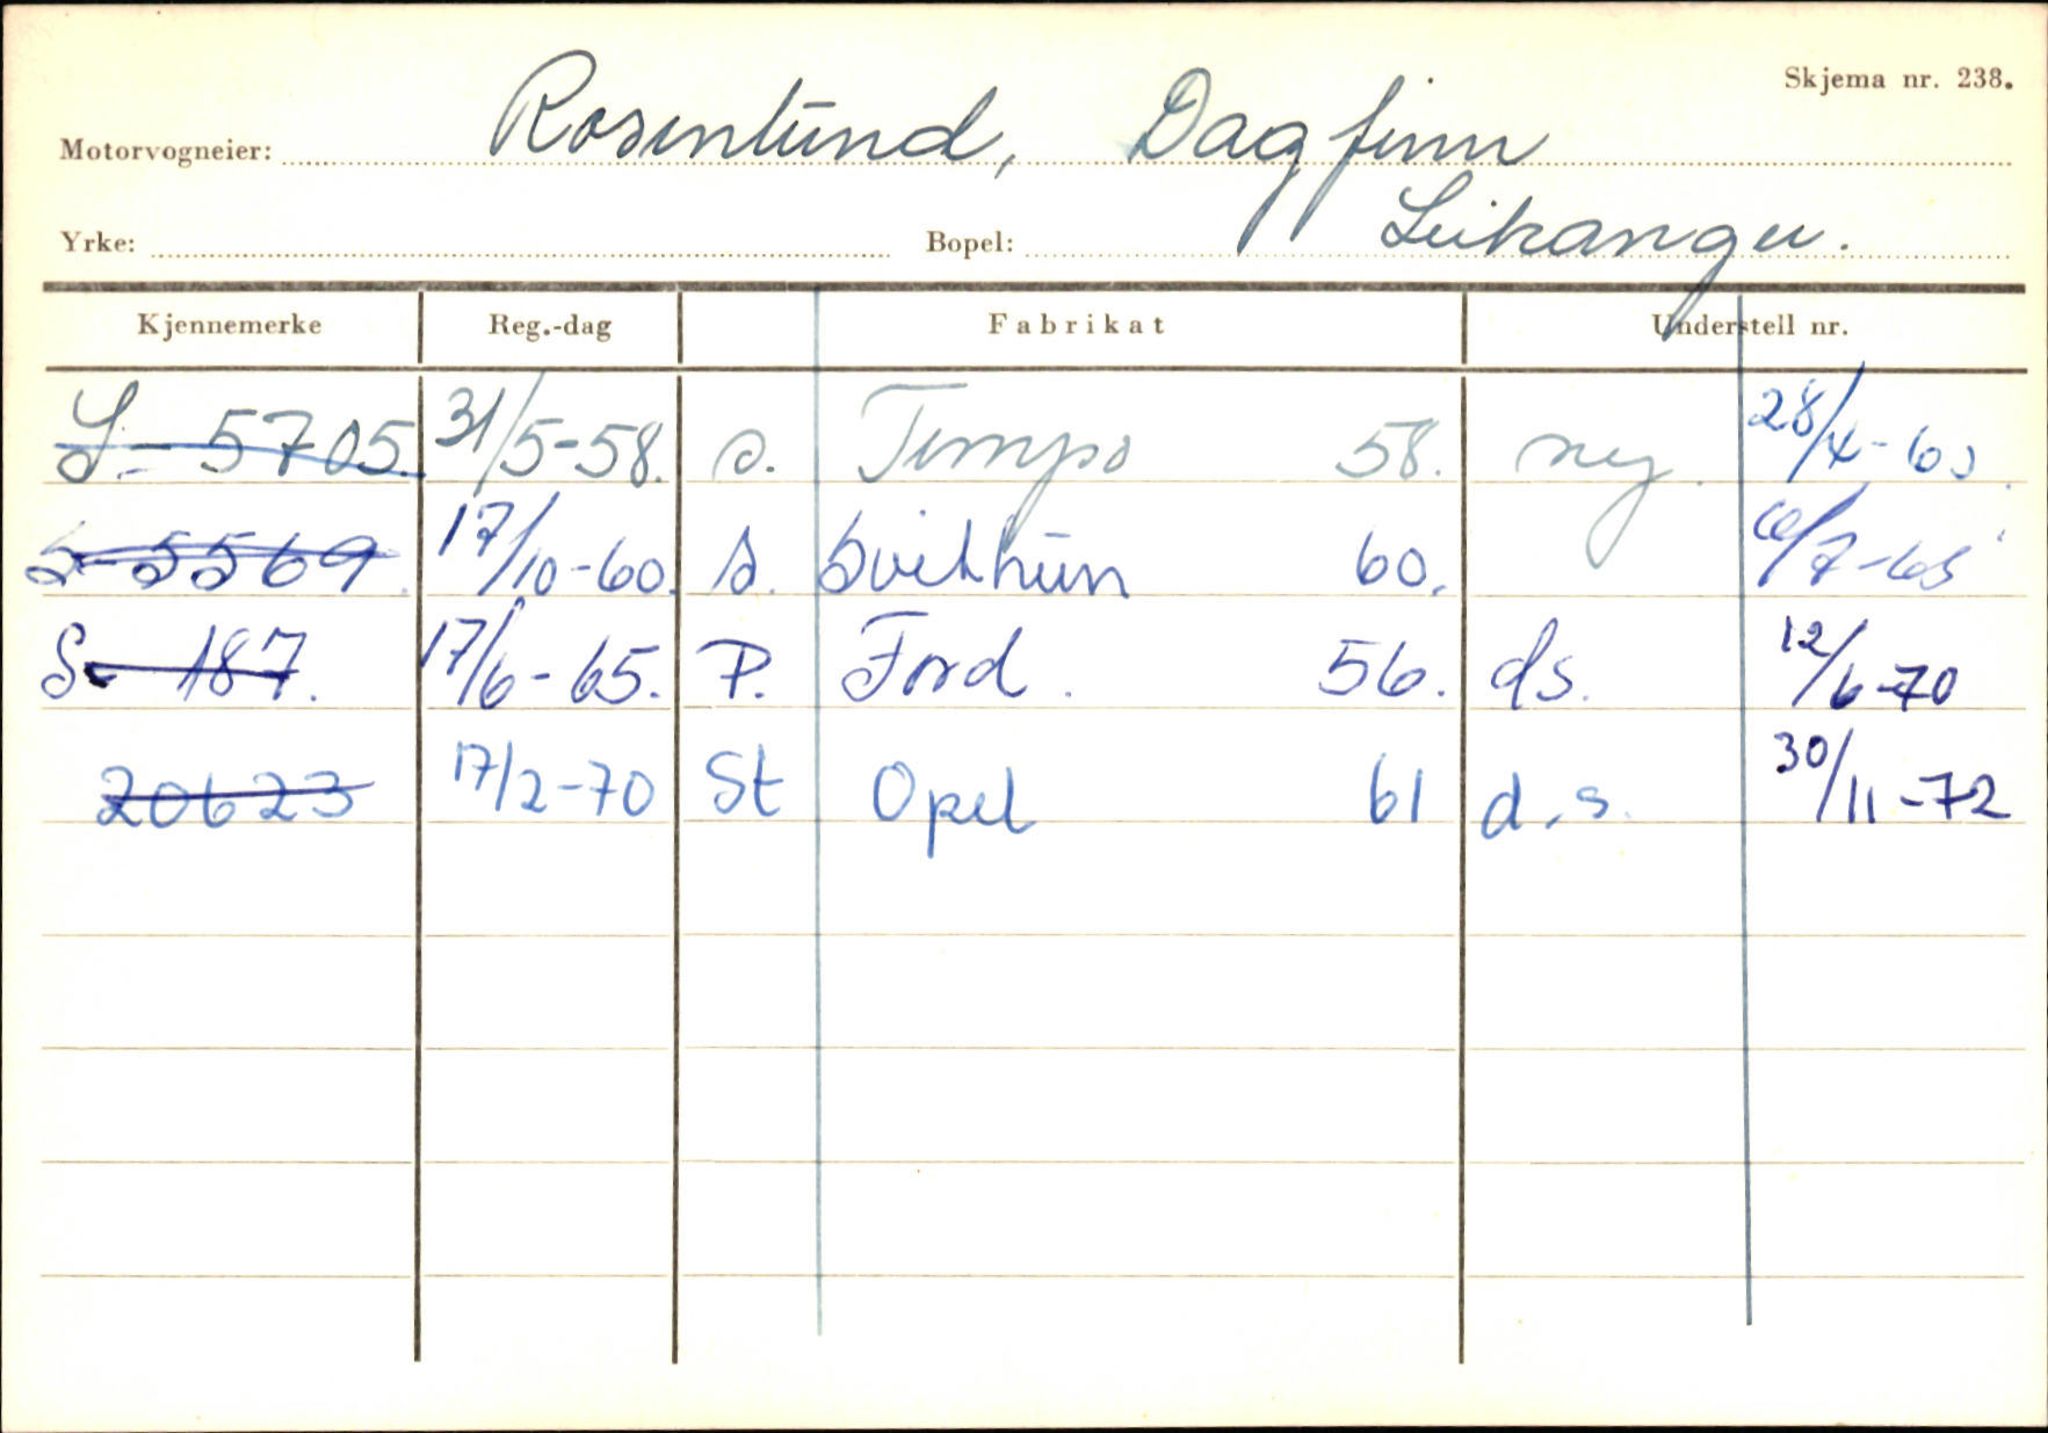 Skjema nr. 238.
Motorvogneier: Rosenlund, Dagfinn
Yrke: Bopel: Leikanger.
Kjennemerke Reg.-dag Fabrikat Understell nr.
S- 5705. 31/5-58. s. Tempo 58. ny. 28/4-60.
S-5569. 17/10-60. s. Svithun 60. 6/7-65
S- 187. 17/6-65. P. Ford. 56. ds. 12/6-70
20623 17/2-70 St Opel 61 d.s. 30/11-72